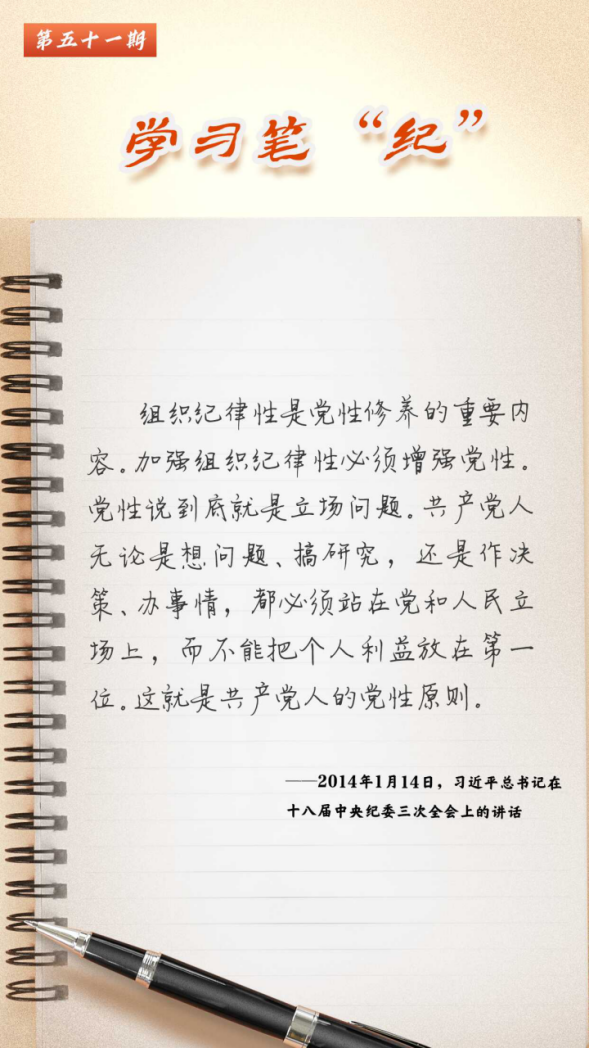 第五十一期
学习笔“纪”
组织纪律性是党性修养的重要内
容。加强组织纪律性必须增强党性。
党性说到底就是立场问题。共产党人
无论是想问题、搞研究，还是作决
策、办事情，都必须站在党和人民立
场上，而不能把个人利益放在第一
位。这就是共产党人的党性原则。
——2014年1月14日，习近平总书记在
十八届中央纪委三次全会上的讲话